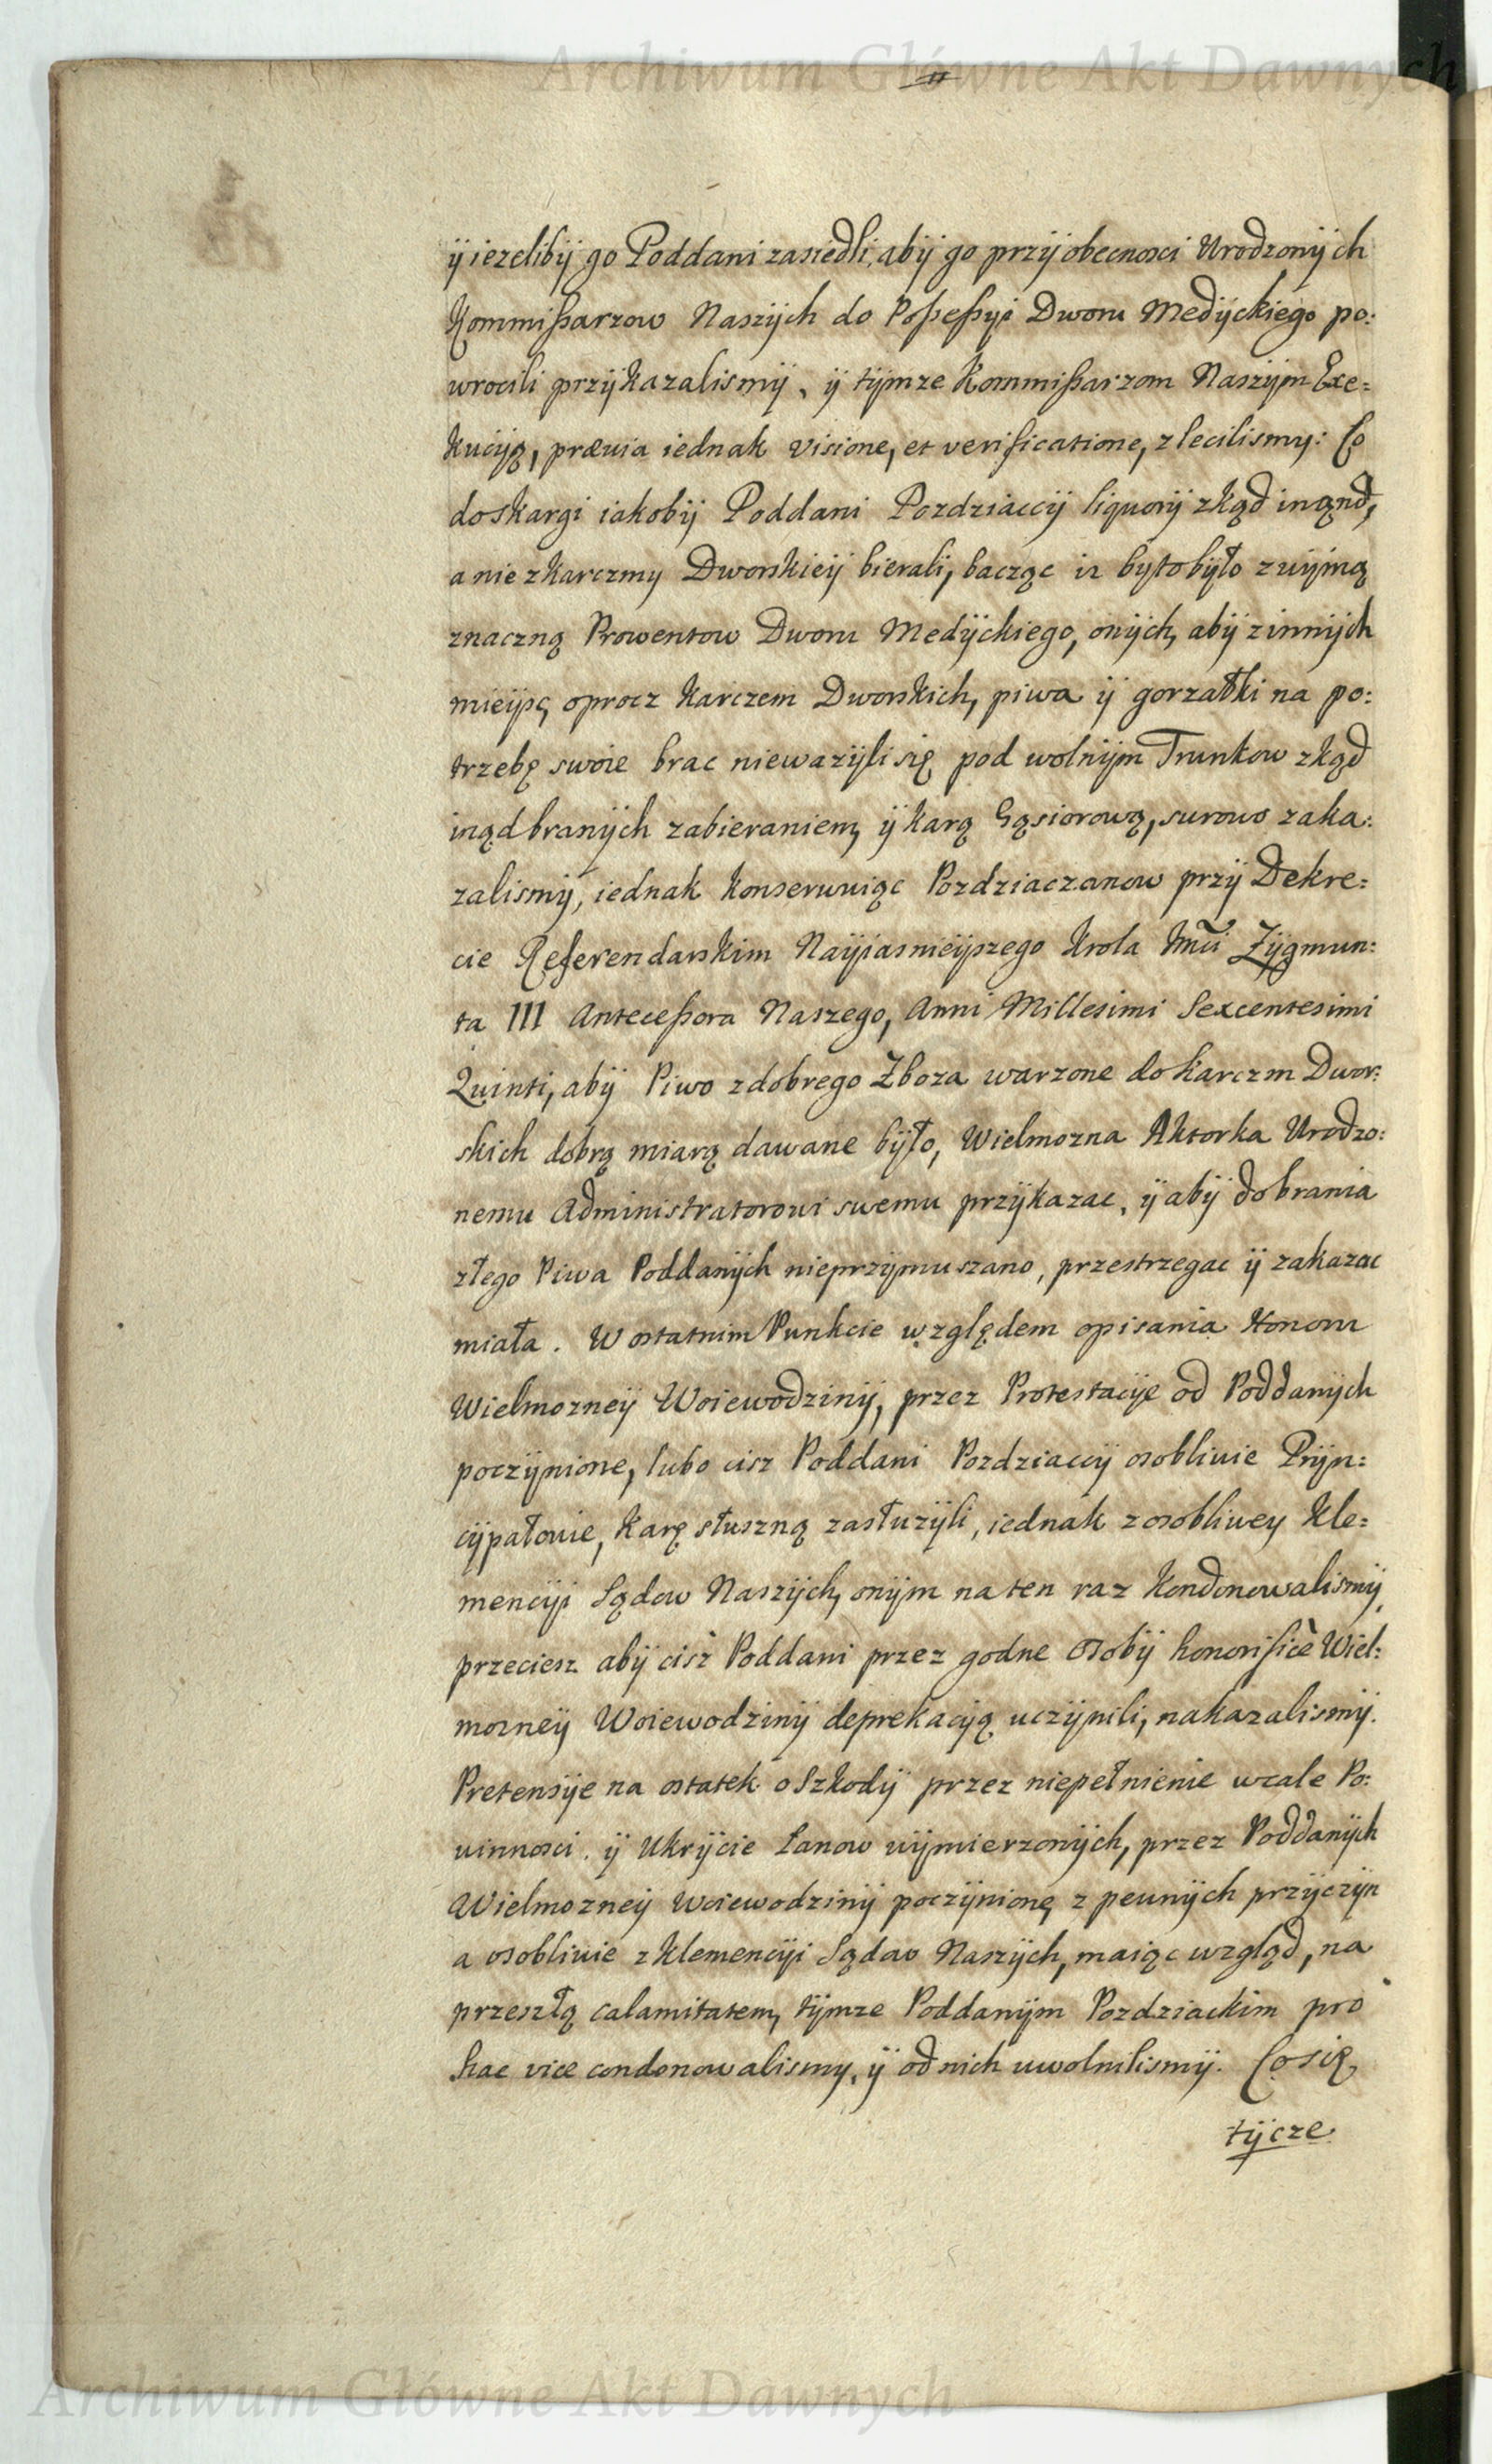 Archiwum Główne Akt Dawnych
ÿ iezelibÿ go Poddani zasiedli, abÿ go przÿ obecnosci Urodzonÿch
Kommißarzow Naszÿch do Poßeßÿi Dworu Medÿckiego po:
wrocili przÿkazalismÿ, ÿ tÿmze Kommißarzom Naszÿm Exe=
kucÿą, prævia iednak visione, et verificatione, zlecilismy: Co
do skargi iakobÿ Poddani Pozdziaccÿ liquorÿ zkąd inąnd,
a nie z karczmy Dworskieÿ bierali, bacząc iz bÿ to bÿło z uÿmą
znaczną Prowentow Dworu Medÿckiego, onÿch, abÿ z innÿch
mieÿsc, oprocz karczem Dworskich, piwa ÿ gorzałki na po:
trzebę swoie brac niewazÿli się pod wolnÿm Trunkow zkąd
inąd branÿch zabieraniem, ÿ karą Gąsiorową, surowo zaka:
zalismÿ, iednak konserwuiąc Pozdziaczanow przÿ Dekre=
cie Referendarskim Naÿiasnieÿszego Krola Jmći Zÿgmun:
ta III Anteceßora Naszego, Anni Millesimi Sexcentesimi
Quinti, abÿ Piwo z dobrego Zboza warzone do karczm Dwor:
skich dobrą miarą dawane bÿło, Wielmozna Aktorka Urodzo:
nemu Administratorowi swemu przÿkazac, ÿ abÿ do brania
złego Piwa Poddanÿch nieprzÿmuszano, przestrzegac ÿ zakazac
miała. W ostatnim Punkcie względem opisania Honoru
Wielmozneÿ Woiewodzinÿ, przez Protestacÿe od Poddanÿch
poczÿnione, lubo cisz Poddani Pozdziaccÿ osobliwie Prÿn=
cÿpałowie, karę słuszną zasłuzÿli, iednak z osobliwey Kle=
mencÿi Sądow Naszÿch, onÿm na ten raz kondonowalismÿ,
przeciesz abÿ cisz Poddani przez godne osobÿ honorificè Wiel:
mozneÿ Woiewodzinÿ deprekacÿą uczÿnili, nakazalismÿ.
Pretensÿe na ostatek o Szkodÿ przez niepełnienie wcale Po:
winnosci, ÿ Ukrÿcie Łanow wÿmierzonÿch, przez Poddanÿch
Wielmozneÿ Woiewodzinÿ poczÿnione, z pewnÿch przÿczÿn
a osobliwie z klemencÿi Sądow Naszÿch, maiąc wzgląd, na
przeszłą calamitatem, tÿmze Poddanÿm Pozdziackim pro
hac vice condonowalismy, ÿ od nich uwolnilismÿ. Co się
tÿcze
Archiwum Główne Akt Dawnych